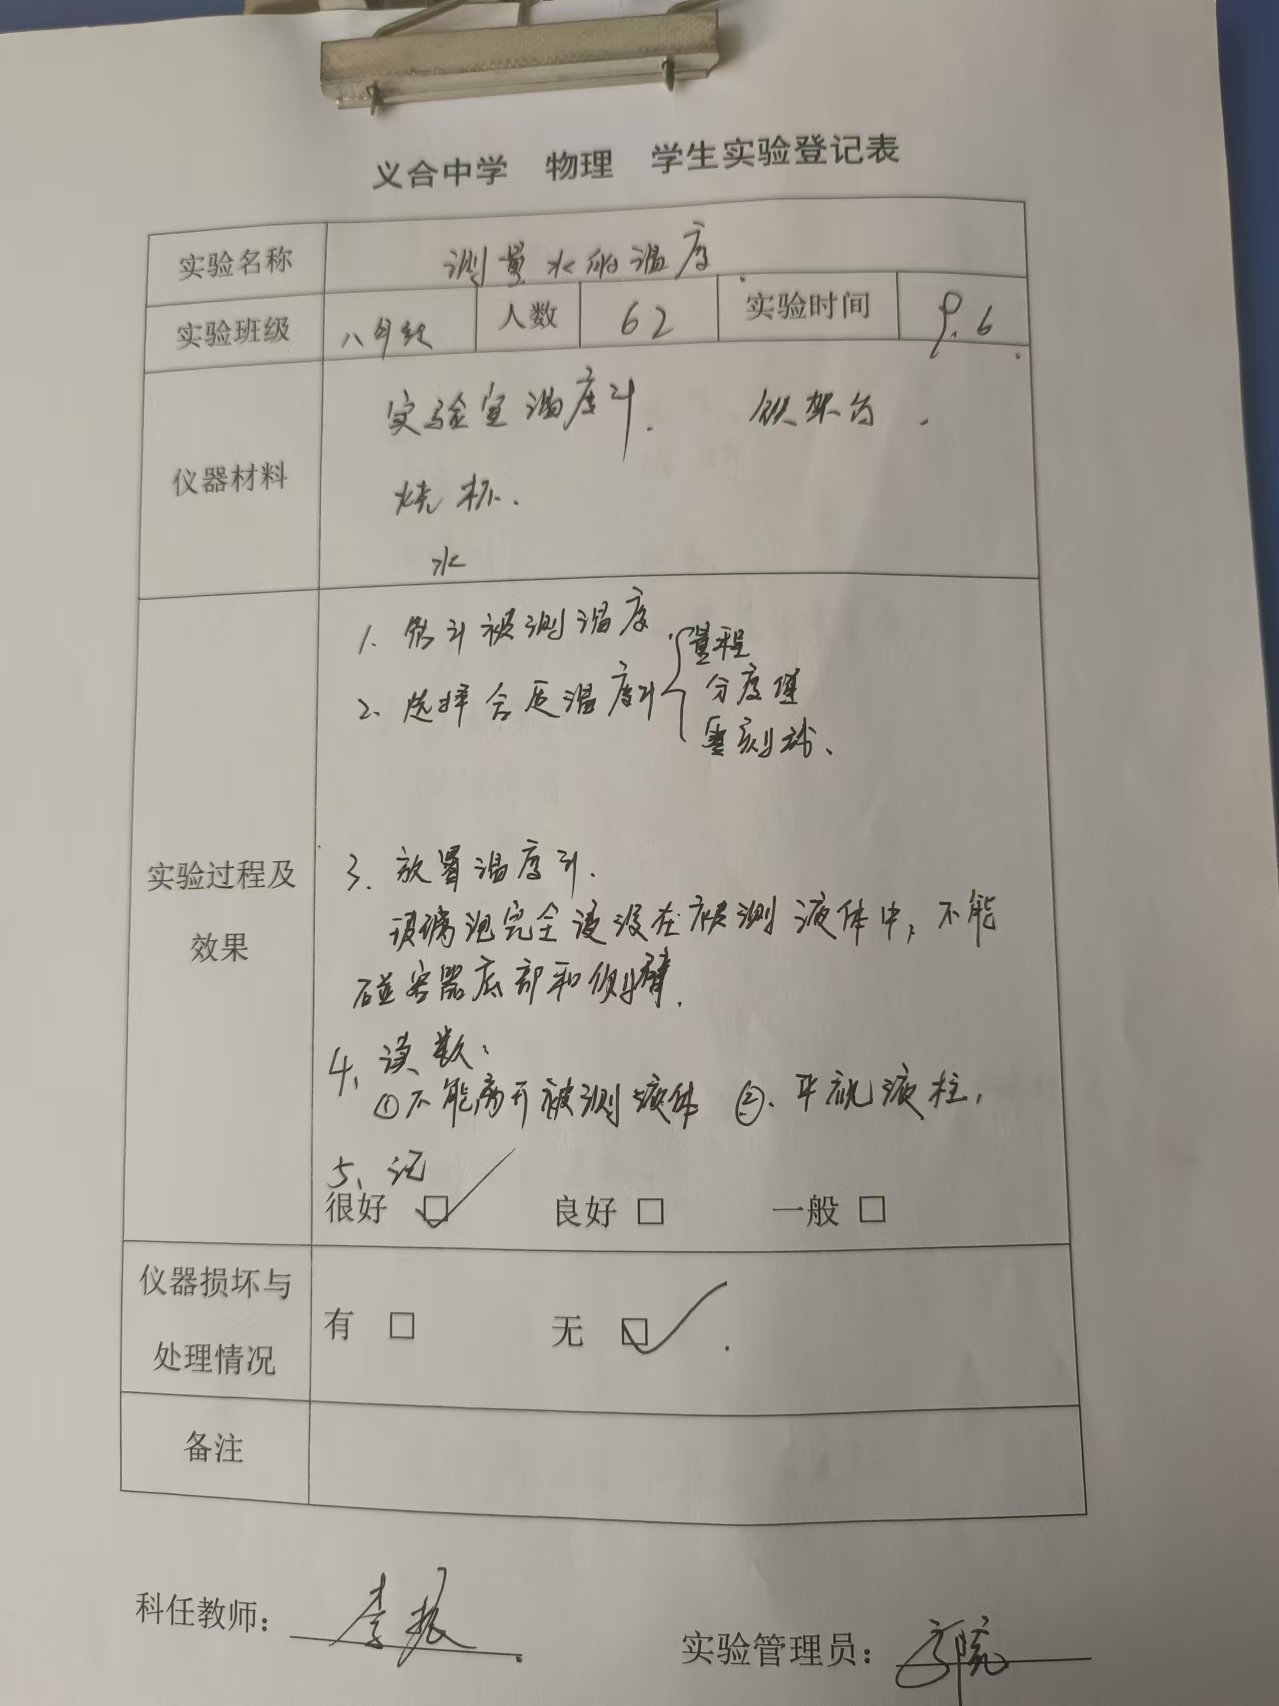 义合中学 物理 学生实验登记表
实验名称 测量水的温度.
实验班级 八年级 人数 62 实验时间 9.6.
仪器材料
实验室温度计. 铁架台.
烧杯.
水
实验过程及
效果
1. 估计被测温度
2、选择合适温度计 量程
分度值
零刻线、
3. 放置温度计.
玻璃泡完全浸没在被测液体中，不能
碰容器底部和侧臂.
4、读数:
①不能离开被测液体 ②、平视液柱,
5、记
很好 良好 一般
仪器损坏与
处理情况
有 无
备注
科任教师: 李振
实验管理员: